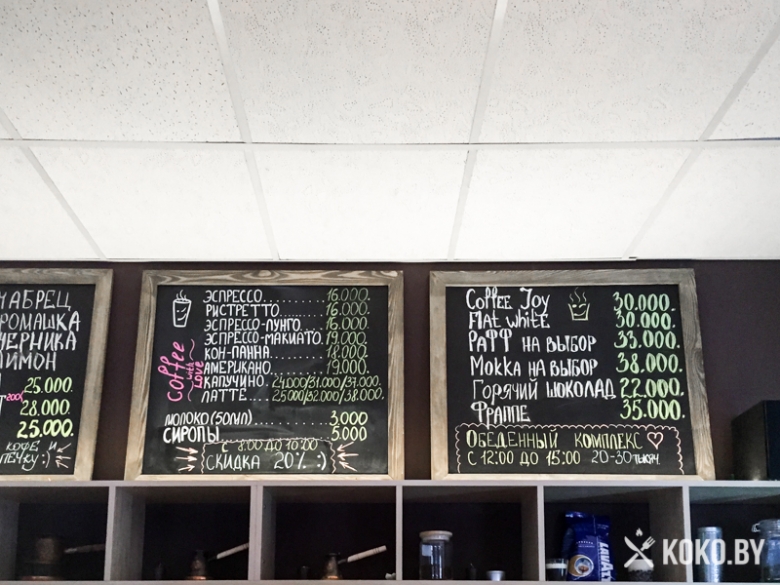 ЧАБРЕЦ
РОМАШКА
ЧЕРНИКА
ЛИМОН
25.000.
28.000.
25.000.
КОФЕ И
Coffee
with
Love
ЭСПРЕССО............16.000.
РИСТРЕТТО..........16.000.
ЭСПРЕССО-ЛУНГО...16.000.
ЭСПРЕССО-МАКИАТО.19.000.
КОН-ПАННА.........18.000.
АМЕРИКАНО.........19.000.
КАПУЧИНО..24.000/31.000/37.000.
ЛАТТЕ...25.000/32.000/38.000.
МОЛОКО(50МЛ)......3.000
СИРОПЫ 5.000
С 8:00 ДО 10:00
СКИДКА 20% :)
Coffee Joy 30.000.
Flat white 30.000.
РАФФ НА ВЫБОР 33.000.
Mokka НА ВЫБОР 38.000.
ГОРЯЧИЙ ШОКОЛАД 22.000.
ФРАППЕ 35.000.
ОБЕДЕННЫЙ КОМПЛЕКС
С 12:00 ДО 15:00 20-30ТЫСЯЧ.
KOKO.BY